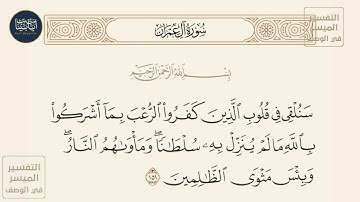 سُورَةُ آلِ عِمْرَانَ
بِسْمِ ٱللَّهِ ٱلرَّحْمَٰنِ ٱلرَّحِيمِ
سَنُلْقِى فِى قُلُوبِ ٱلَّذِينَ كَفَرُوا۟ ٱلرُّعْبَ بِمَآ أَشْرَكُوا۟
بِٱللَّهِ مَا لَمْ يُنَزِّلْ بِهِۦ سُلْطَٰنًا ۖ وَمَأْوَىٰهُمُ ٱلنَّارُ ۚ
وَبِئْسَ مَثْوَى ٱلظَّٰلِمِينَ ١٥١
التفسير
الميسر
في الوصف
التفسير
الميسر
في الوصف